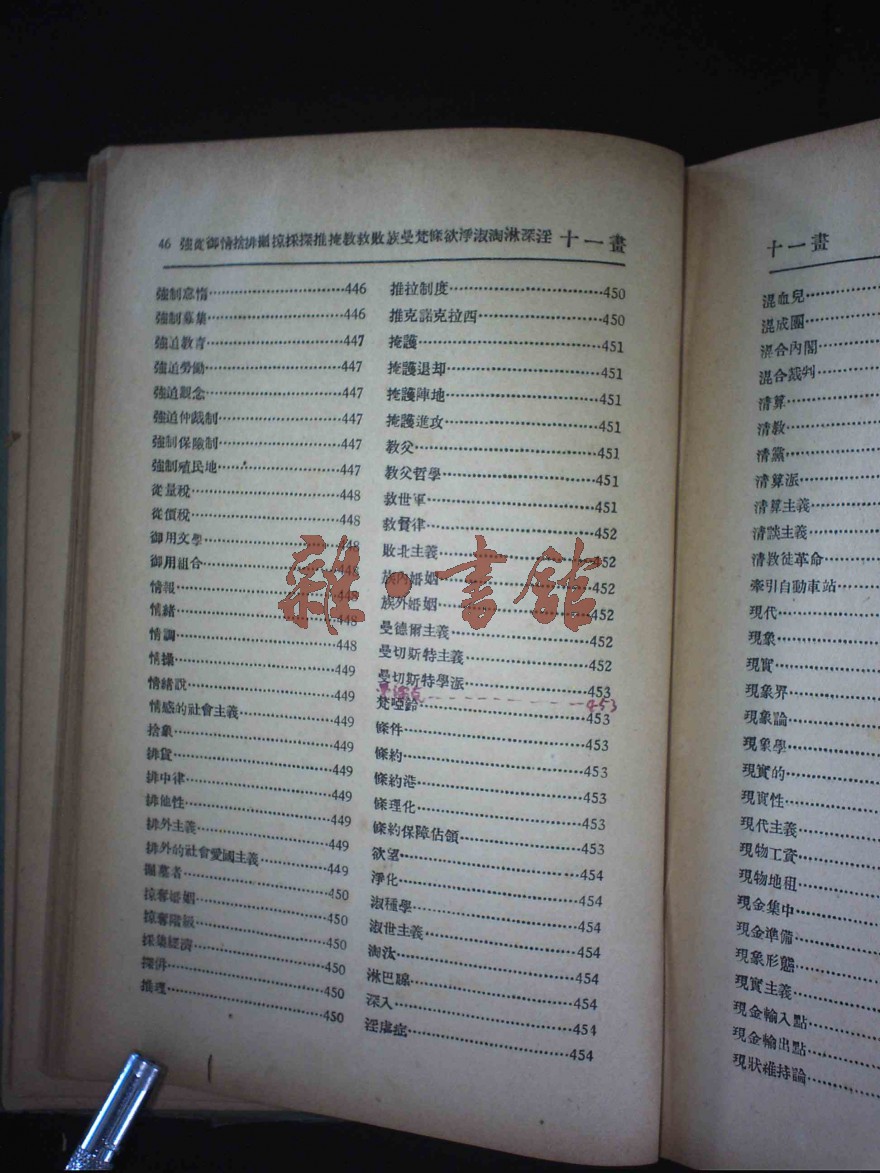 46 強從御情捨排掘掠採探推掩教救敗族曼梵條欲淨淑淘淋深淫 十一畫
強制怠惰 446
強制募集 446
強迫教育 447
強迫勞働 447
強迫觀念 447
強迫仲裁制 447
強制保險制 447
強制殖民地 447
從量稅 448
從價稅 448
御用文學 448
御用組合 448
情報 448
情緒 448
情調 448
情操 449
情緒說 449
情感的社會主義 449
捨象 449
排貨 449
排中律 449
排他性 449
排外主義 449
排外的社會愛國主義 449
掘墓者 450
掠奪婚姻 450
掠奪階級 450
採集經濟 450
探併 450
推理 450
推拉制度 450
推克諾克拉西 450
掩護 451
掩護退却 451
掩護陣地 451
掩護進攻 451
教父 451
教父哲學 451
救世軍 451
救貧律 452
敗北主義 452
族內婚姻 452
族外婚姻 452
曼德爾主義 452
曼切斯特主義 452
曼切斯特學派 453
453
梵啞鈴 453
條件 453
條約 453
條約港 453
條理化 453
條約保障佔領 453
欲望 454
淨化 454
淑種學 454
淑世主義 454
淘汰 454
淋巴腺 454
深入 454
淫虐症 454
雜·書館
十一畫
混血兒
混成團
混合內閣
混合裁判
清算
清教
清黨
清算派
清算主義
清談主義
清教徒革命
牽引自動車站
現代
現象
現實
現象界
現象論
現象學
現實的
現實性
現代主義
現物工資
現物地租
現金集中
現金準備
現象形態
現實主義
現金輸入點
現金輸出點
現狀維持論